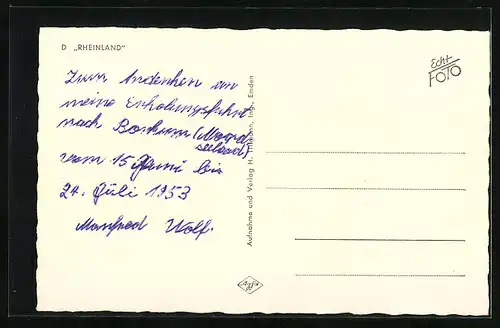 D „RHEINLAND"
Echt
FOTO
Zum Andenken an
meine Erholungsfahrt
nach Borkum (Nord-
seebad)
vom 15 Juni bis
24. Juli 1953
Manfred Wolf.
Aufnahme und Verlag H. Ing., Emden